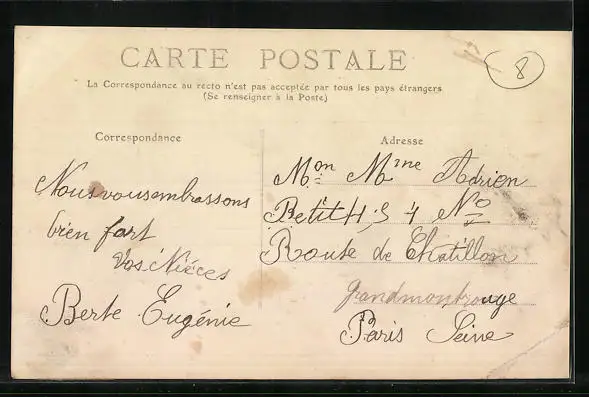 CARTE POSTALE
8
La Correspondance au recto n'est pas acceptée par tous les pays étrangers
(Se renseigner à la Poste)
Correspondance
Nous vous embrassons
bien fort
Vos Nièces
Berte Eugénie
Adresse
Mon Mme Adrien
Petit H 5 4 No
Route de Chatillon
grandmontrouge
Paris Seine